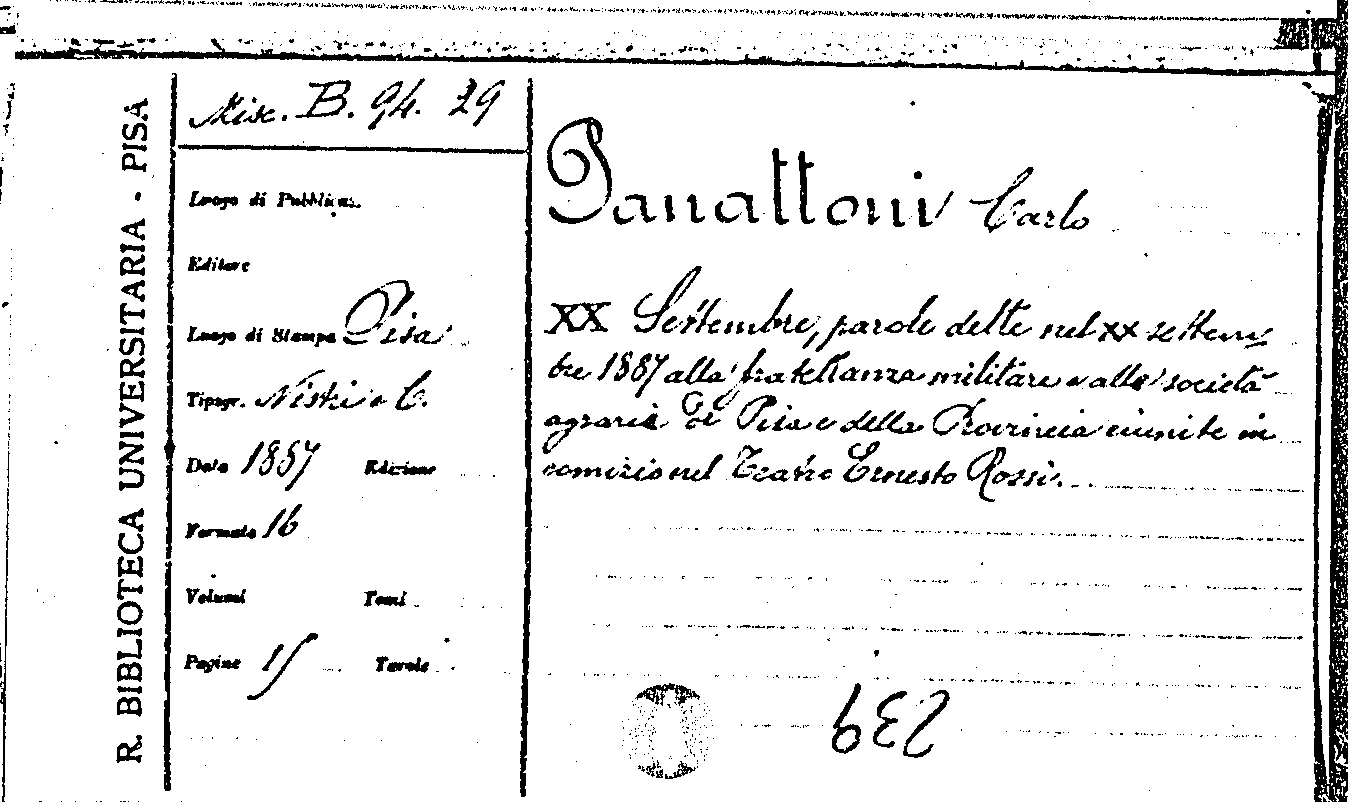 R. BIBLIOTECA UNIVERSITARIA - PISA
Misc. B. 94. 29
Luogo di Pubblicaz.
Editore
Luogo di Stampa Pisa
Tipogr. Nistri e C.
Data 1887 Edizione
Formato 16
Volumi Tomi
Pagine 15 Tavole
Panattoni Carlo
XX Settembre, parole dette nel XX settem
bre 1887 alla fratellanza militare e alle società
agrarie di Pisa e della Provincia riunite in
comizio nel Teatro Ernesto Rossi.
239